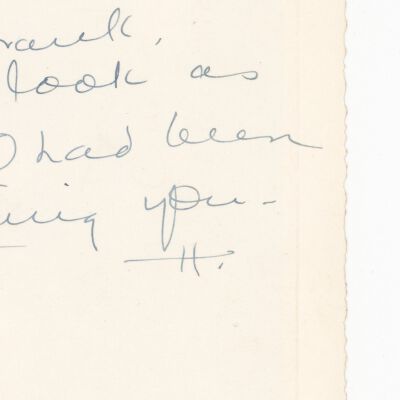 rank,
look as
I had been
ing you -
H.